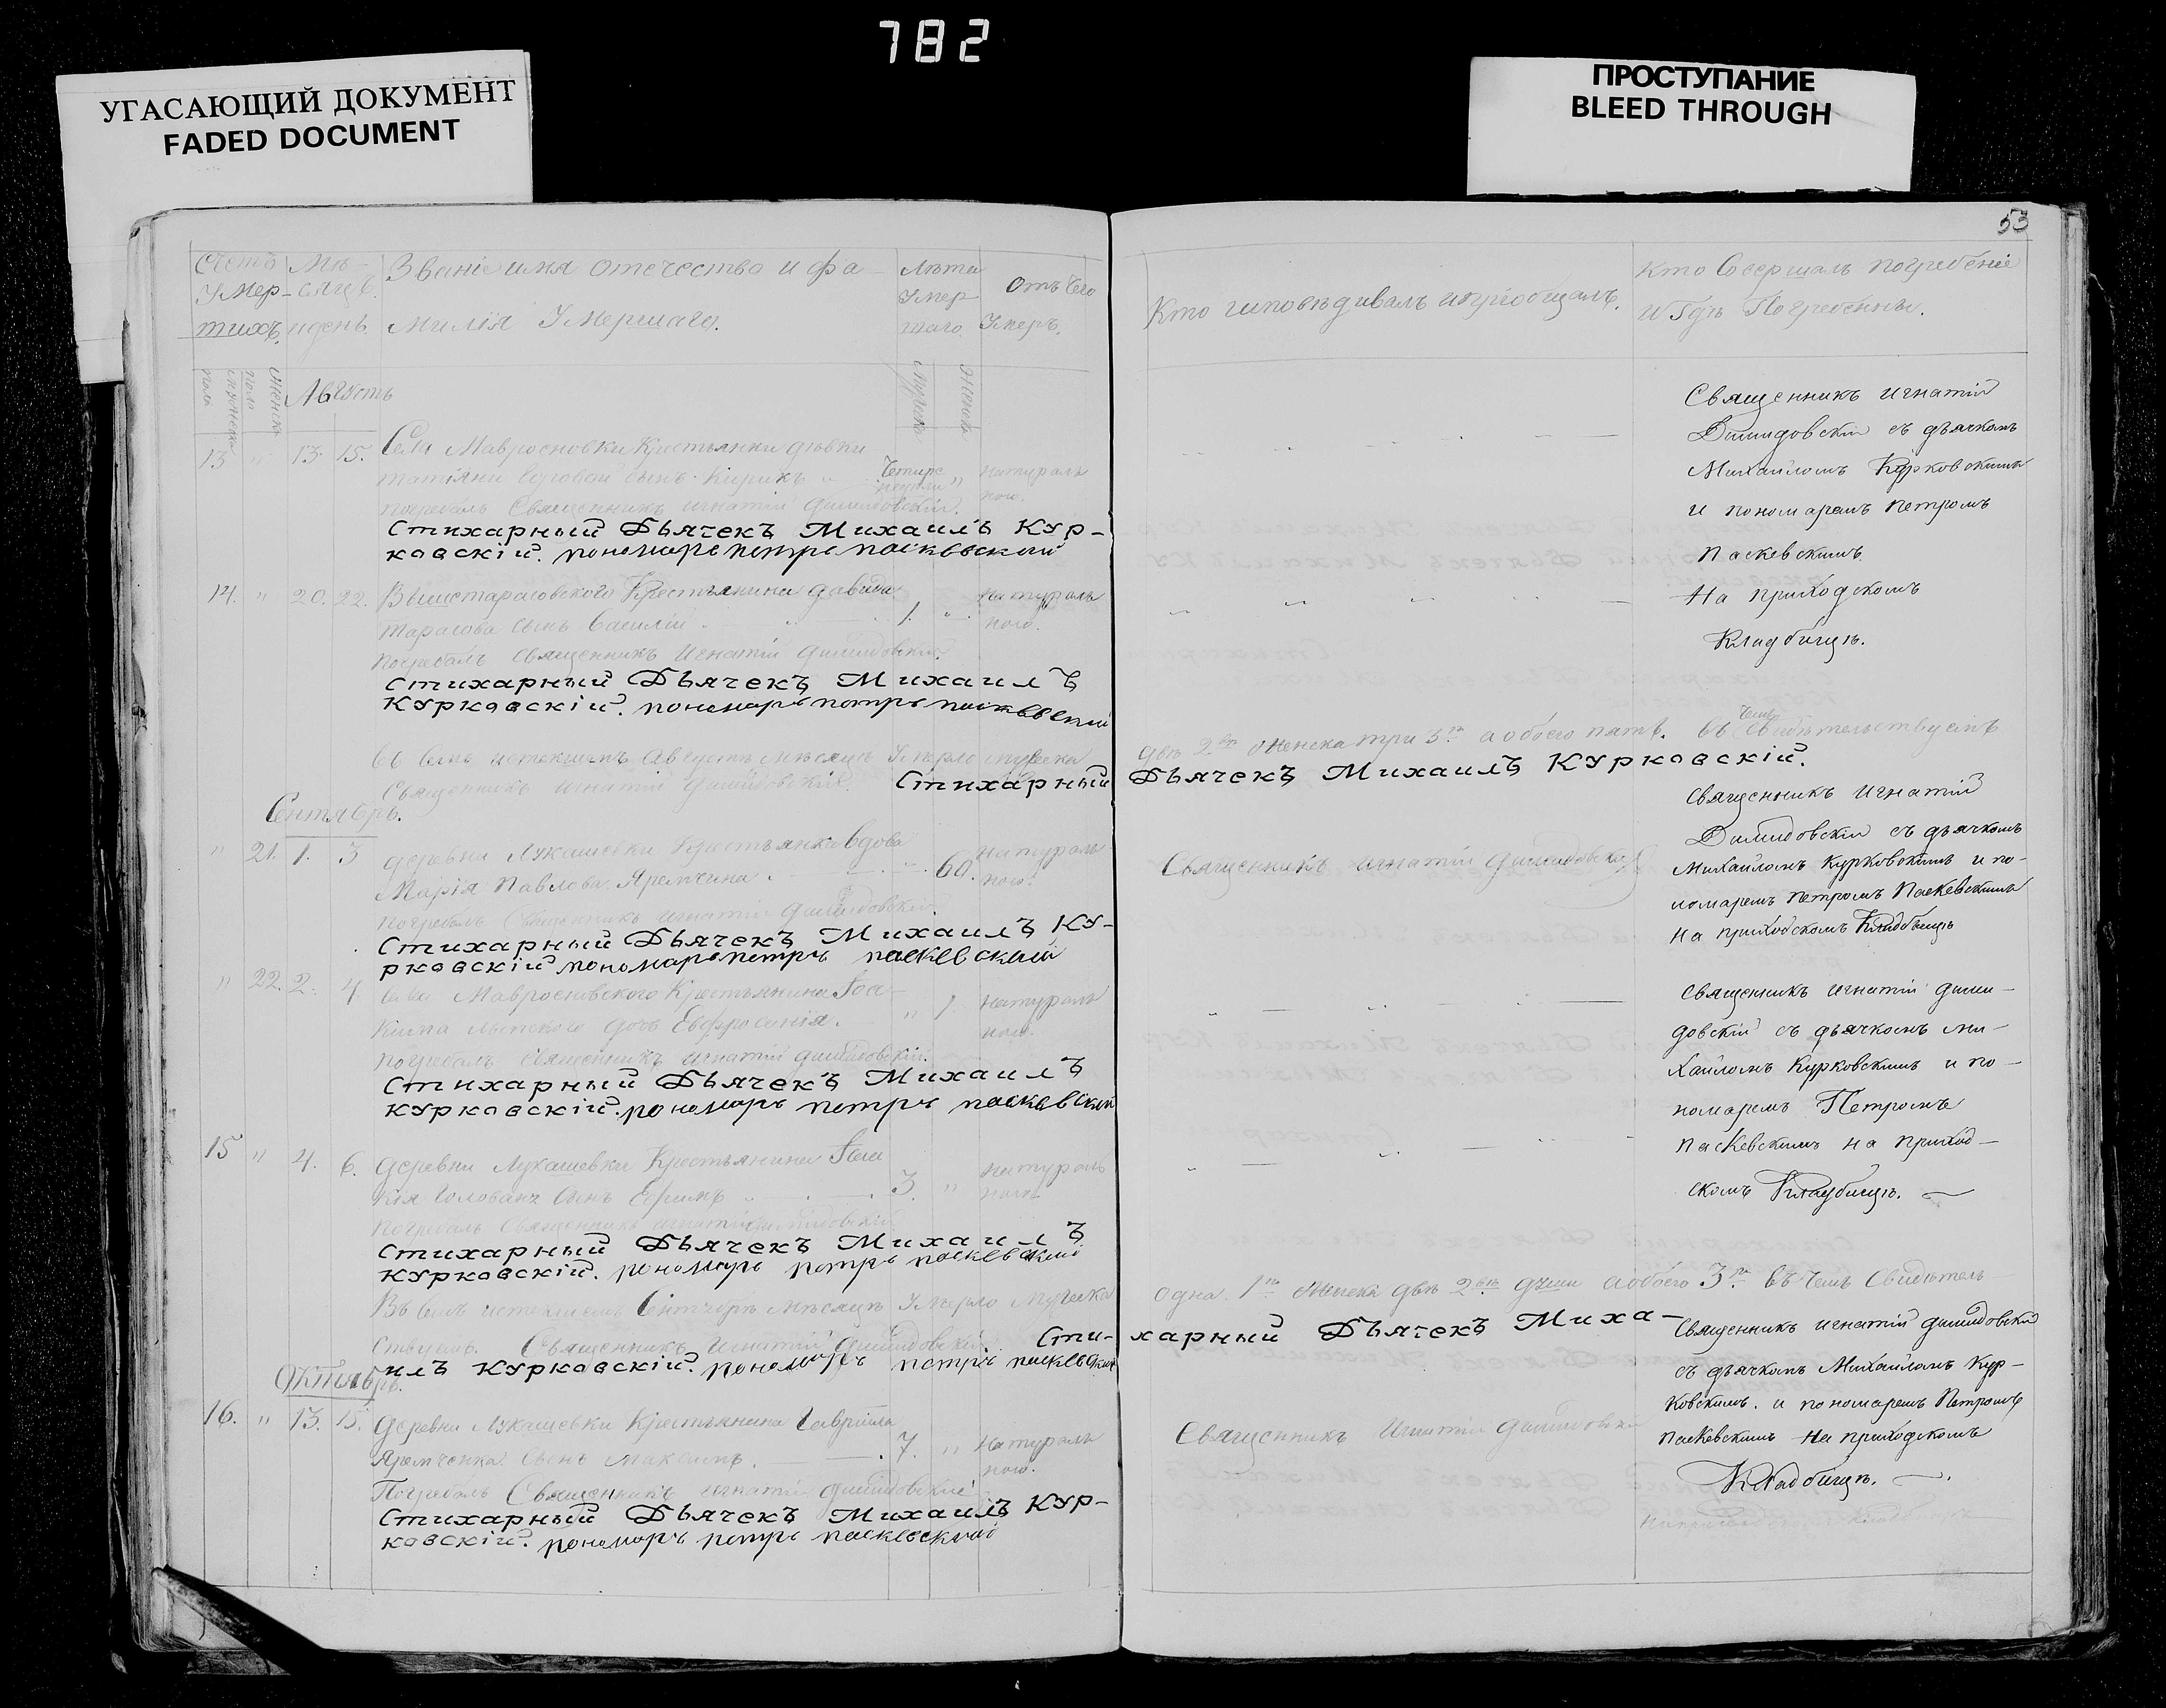 782
УГАСАЮЩИЙ ДОКУМЕНТ
FADED DOCUMENT
ПРОСТУПАНИЕ
BLEED THROUGH
53
Счетъ Умер-тихъ.
Мѣ-сяцъ и день.
Званіе имя отечество и фа-
милія Умершаго.
Лѣта Умер шаго
Отъ чего Умеръ.
Кто исповѣдивалъ и пріобщалъ.
Кто Совершалъ погребеніе
и Гдѣ Погребенны.
Августъ
13 " 13. 15. Села Крестьянки дѣвки
сынъ Кирикъ Четире недѣли " натураль ною.
погребалъ Священникъ Игнатій Димидовскій.
Стихарный Дьячекъ Михаилъ Кур-
ковскій. пономарь петръ паскевский
Священникъ Игнатій
Димидовскій съ дьячкомъ
Михайломъ Курковскимъ
и пономаремъ Петромъ
Паскевскимъ
На приходскомъ
Кладбищѣ.
14. " 20. 22. Крестьянина Давида
Тарасова сынъ Василій 1. " натураль ною.
погребалъ священникъ Игнатій Димидовскій.
Стихарный Дьячекъ Михаилъ
Курковскій. пономарь петръ паскевский
Въ семъ истекшемъ Августѣ мѣсяцѣ Умерло мужеска двѣ 2 женска три 3 а обоего пять. въ чемъ свидѣтельствуемъ
Священникъ Игнатій Димидовскій. Стихарный Дьячекъ Михаилъ Курковскій.
Сентябрь.
" 21. 1. 3 деревни Лукашевки Крестьянка вдова
Марія Павлова Яремчина. 60. натураль ною.
погребалъ Священникъ Игнатій Димидовскій.
Стихарный Дьячекъ Михаилъ Ку-
рковскій пономарь петръ паскевский
Священникъ Игнатій Димидовскій
Священникъ Игнатій
Димидовскій съ дьячкомъ
Михайломъ Курковскимъ и по-
номаремъ Петромъ Паскевскимъ
На приходскомъ Кладбищѣ
" 22. 2. 4 Села Крестьянина Іоа-
кима дочь Евфросинія. " 1. натураль ною.
погребалъ священникъ Игнатій Димидовскій.
Стихарный Дьячекъ Михаилъ
Курковскій. пономарь петръ паскевский
Священникъ Игнатій Дими-
довскій съ дьячкомъ Ми-
хайломъ Курковскимъ и по-
номаремъ Петромъ
Паскевскимъ на приход-
скомъ Кладбищѣ.
15 " 4. 6. деревни Лукашевки Крестьянина
сынъ Ефимъ 3. " натураль ною
погребалъ Священникъ Игнатій Димидовскій
Стихарный Дьячекъ Михаилъ
Курковскій. пономарь петръ паскевский
Въ семъ истекшемъ Сентябрѣ мѣсяцѣ Умерло Мужеска одна 1 Женска двѣ 2 души а обоего 3. въ чемъ Свидѣтель-
ствуемъ. Священникъ Игнатій Димидовскій. Сти-харный Дьячекъ Миха-
илъ Курковскій. пономарь петръ паскевский
Октябрь.
16. " 13. 15. деревни Лукашевки Крестьянина Гавріила
Яремченка сынъ Максимъ. 7. " Натураль ною.
Погребалъ Священникъ Игнатій Димидовскій
Стихарный Дьячекъ Михаилъ Кур-
ковскій. пономарь петръ паскевский
Священникъ Игнатій Димидовскій
Священникъ Игнатій Димидовскій
съ дьячкомъ Михайломъ Кур-
ковскимъ. и пономаремъ Петромъ
Паскевскимъ На приходскомъ
Кладбищѣ.